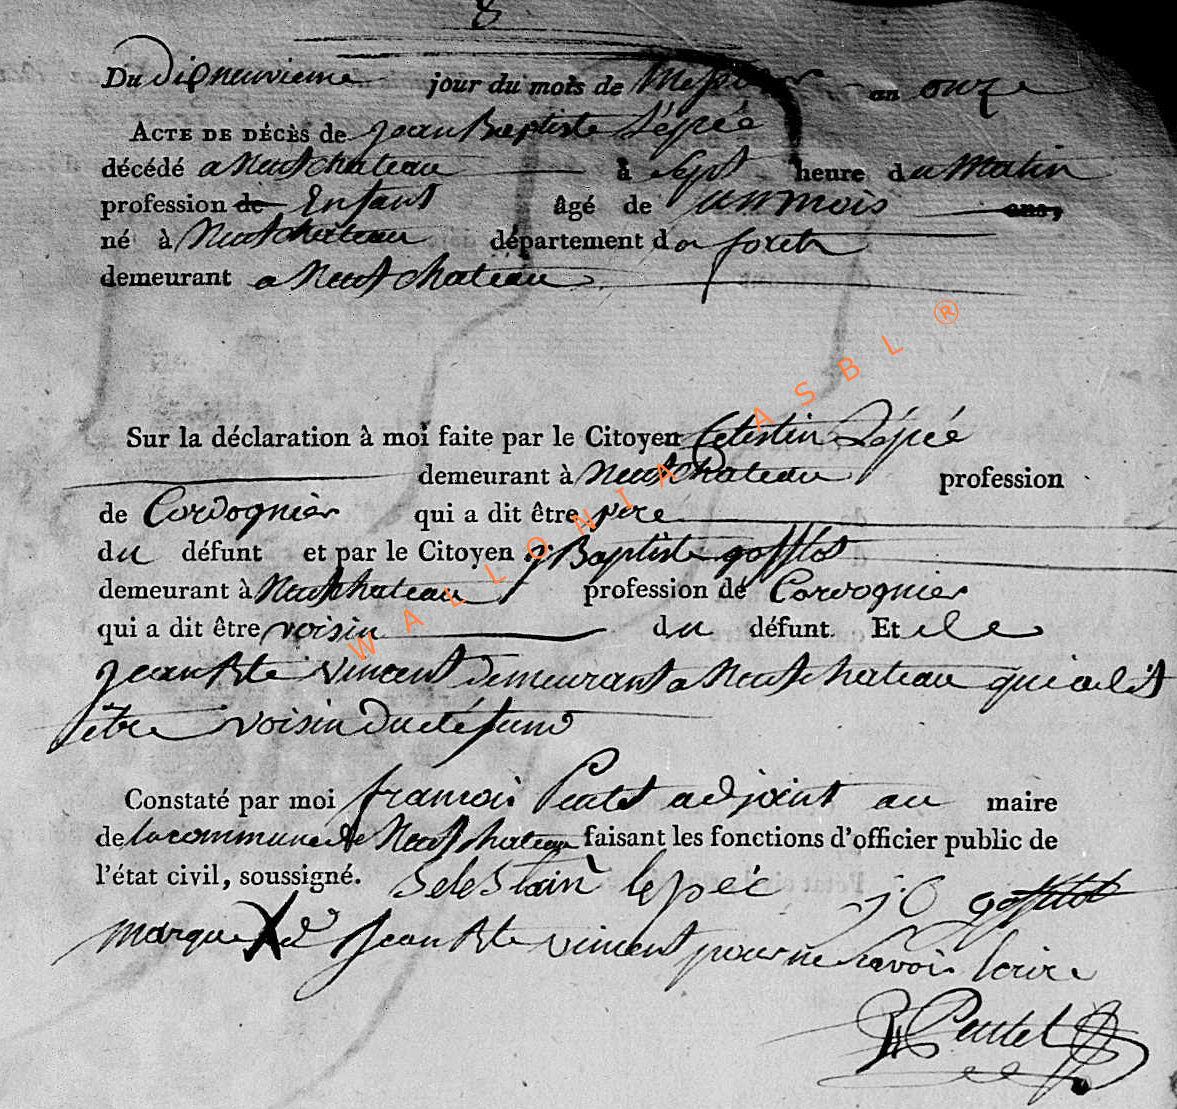 8
Du dixneuvieme jour du mois de Messidor an onze
ACTE DE DÉCÈS de jean Baptiste Lépée
décédé a Neufchateau à Sept heure du Matin
profession de Enfant âgé de un mois ans,
né à Neufchateau département da foret
demeurant a Neufchateau
Sur la déclaration à moi faite par le Citoyen Celestin Lépée
demeurant à Neufchateau profession
de Cordognier qui a dit être pere
du défunt et par le Citoyen j. Baptiste gofflot
demeurant à Neufchateau profession de Cordognier
qui a dit être voisin du défunt. Et de
jean Bte vincent demeurant a Neufchateau qui a dit
être voisin du défund
Constaté par moi francois adjoint au maire
de la commune de Neufchateau faisant les fonctions d'officier public de
l'état civil, soussigné. Selestain lepée j. B gofflot
marque X de jean Bte vincent pour ne Savoir Ecrire
WALLONIA ASBL ®